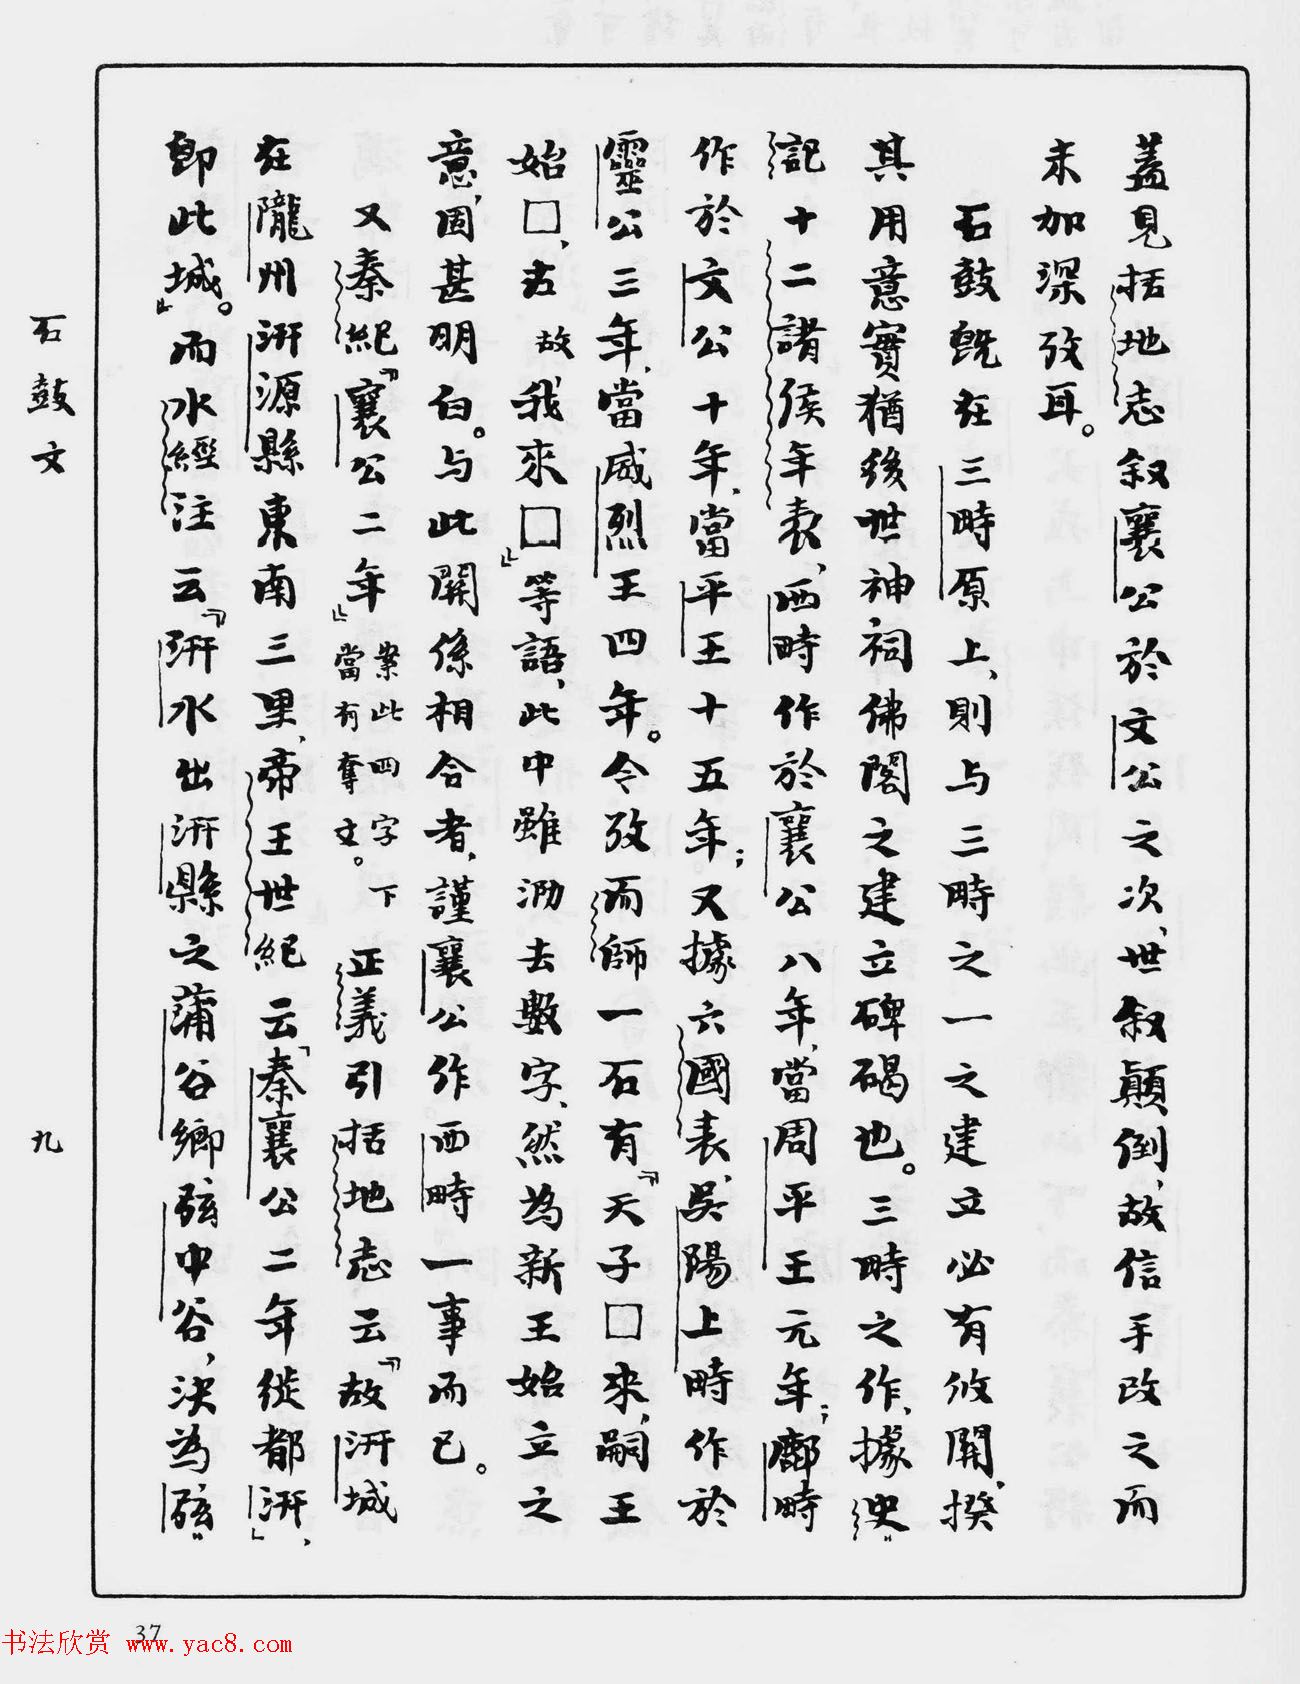 蓋見括地志叙襄公於文公之次、世叙顛倒、故信手改之而
未加深攷耳。
石鼓既在三畤原上、則与三畤之一之建立必有攸關、揆
其用意實猶後世神祠佛閣之建立碑碣也。三畤之作、據史
記十二諸侯年表、西畤作於襄公八年、當周平王元年；鄜畤
作於文公十年、當平王十五年；又據六國表、吳陽上畤作於
靈公三年、當威烈王四年。今攷而師一石有「天子□來、嗣王
始□、古故我來□」等語、此中雖泐去數字、然為新王始立之
意、固甚明白。与此關係相合者、謹襄公作西畤一事而已。
又秦紀「襄公二年」案此四字下當有奪文。正義引括地志云「故汧城
在隴州汧源縣東南三里、帝王世紀云「秦襄公二年徙都汧」、
即此城。」而水經注云「汧水出汧縣之蒲谷鄉弦中谷、決為弦
石鼓文
九
37
书法欣赏 www.yac8.com